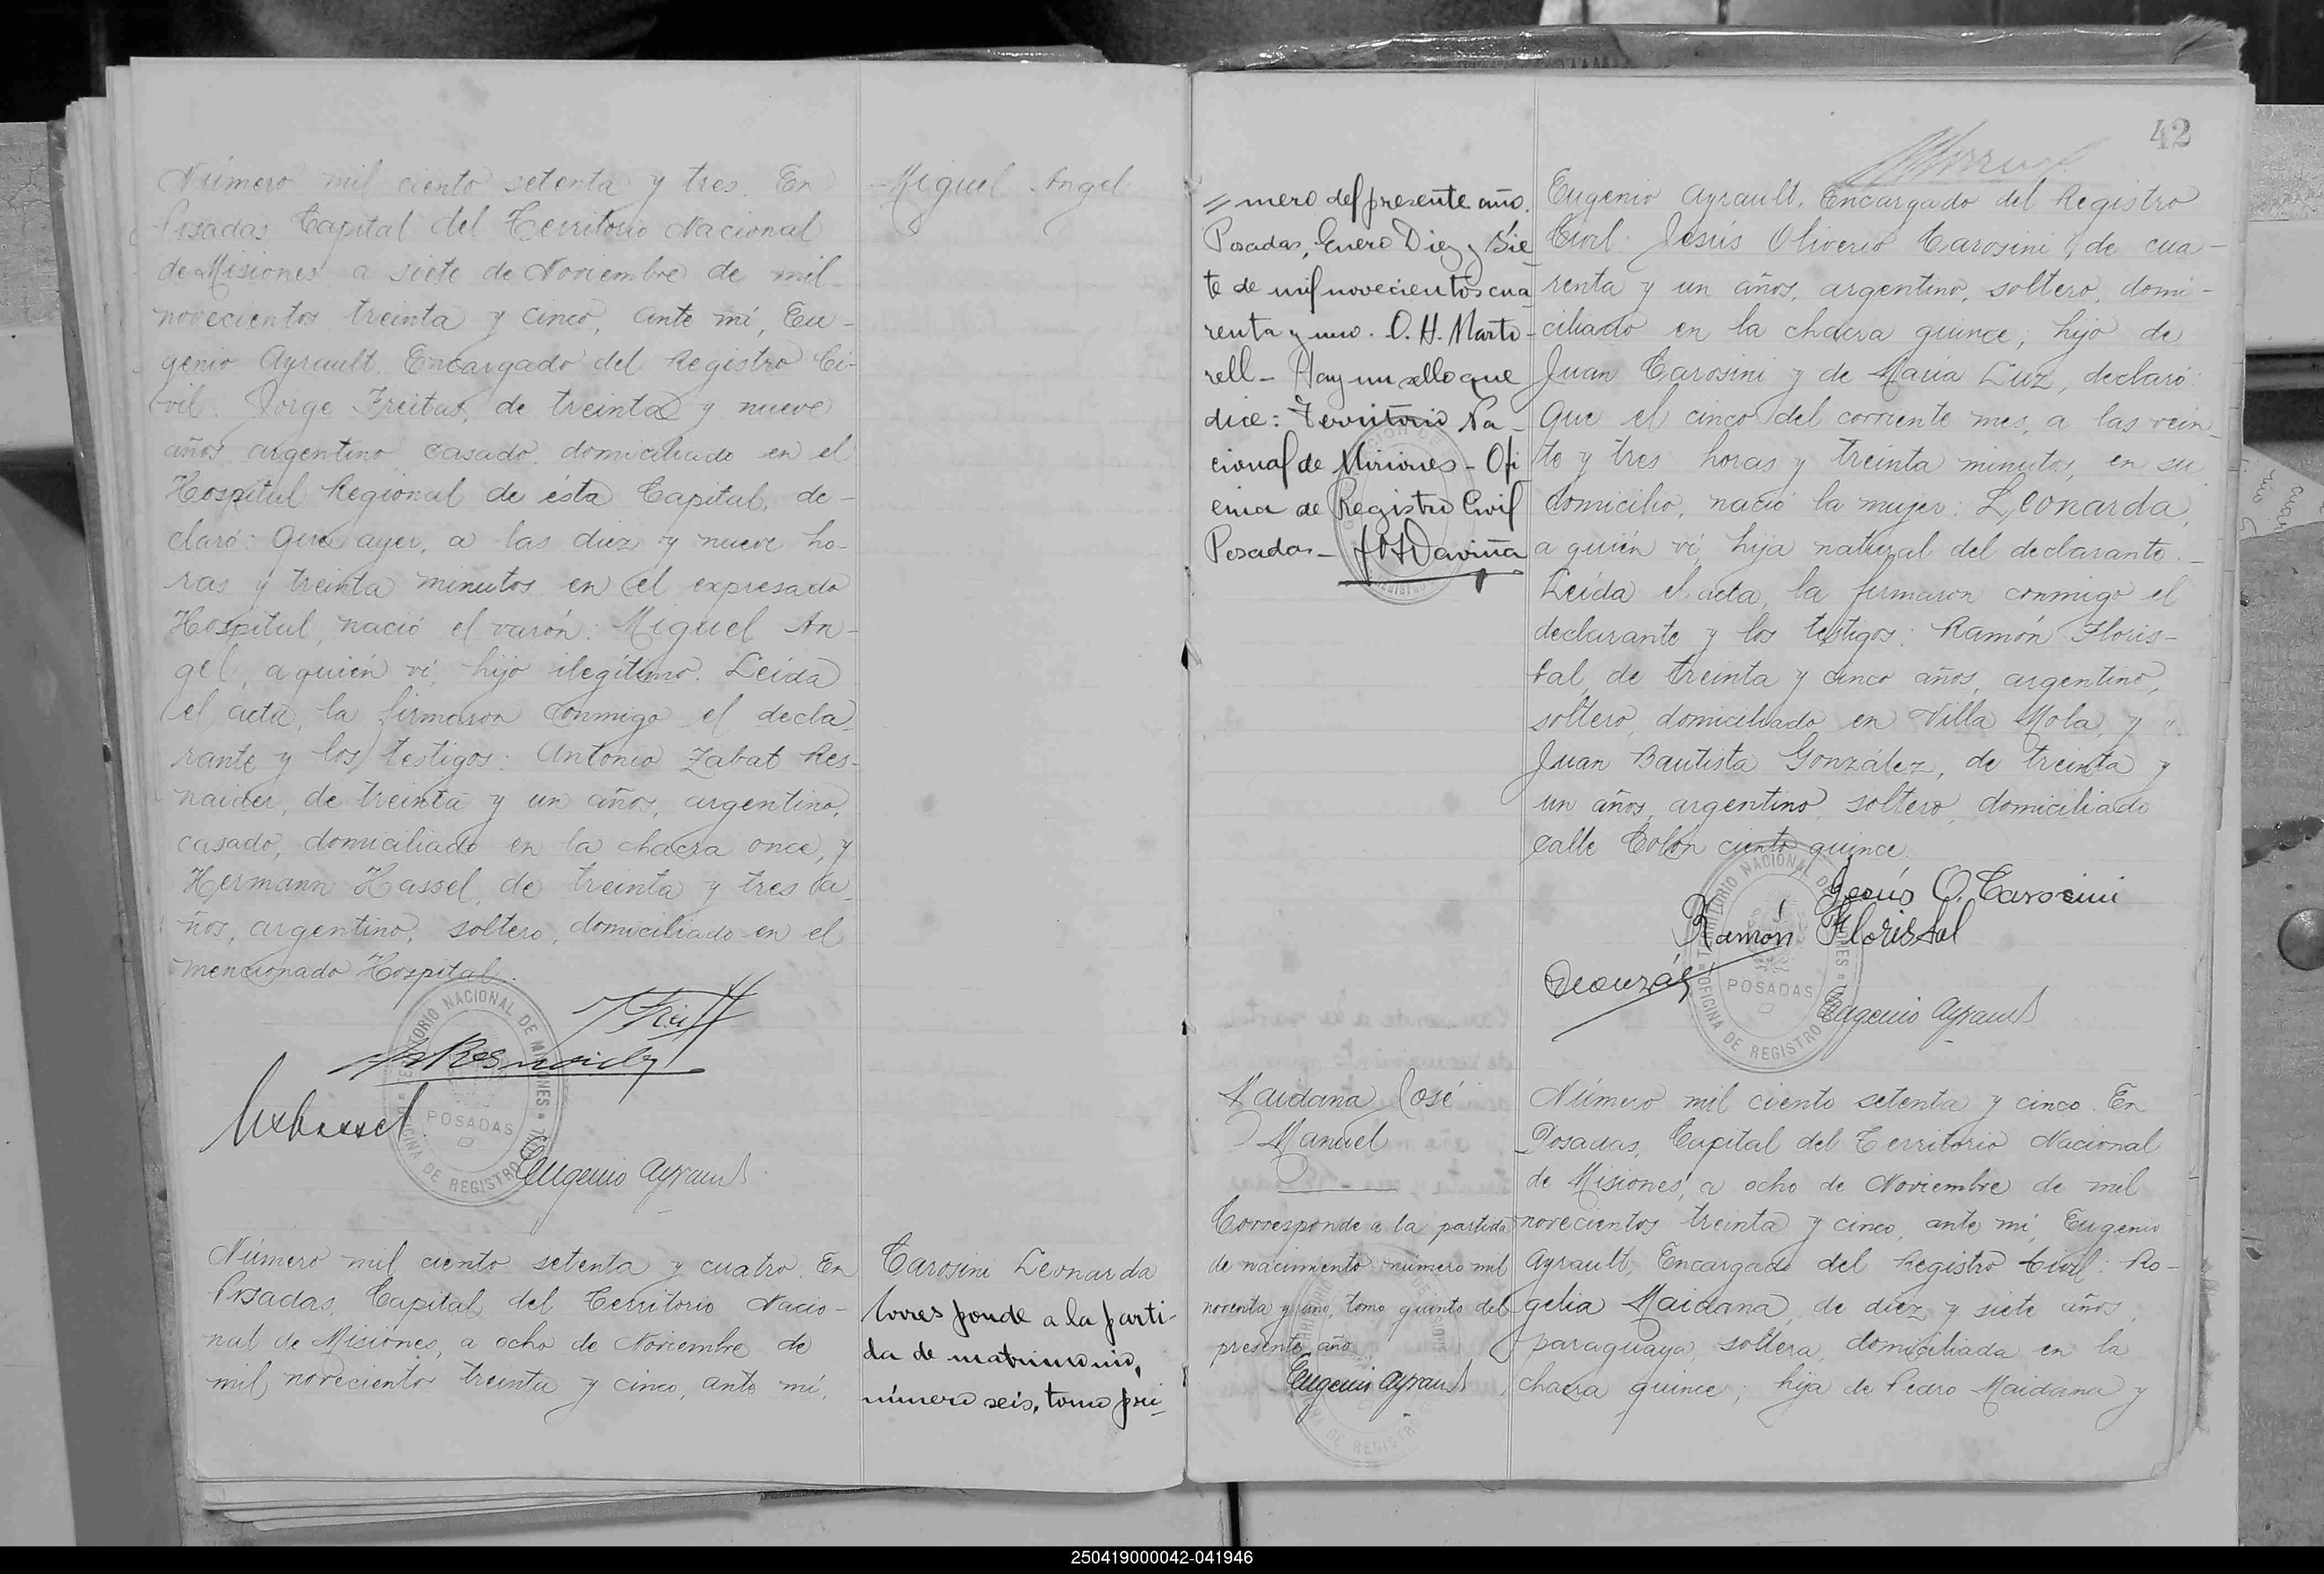 Número mil ciento setenta y tres. En
Posadas Capital del Territorio Nacional
de Misiones a siete de Noviembre de mil
novecientos treinta y cinco, ante mí, Eu-
genio Ayrault. Encargado del Registro Ci-
vil. Jorge Freitas, de treinta y nueve
años argentino casado, domiciliado en el
Hospital Regional de ésta Capital, de-
claró: Que ayer, a las diez y nueve ho-
ras y treinta minutos en el expresado
Hospital, nació el varón: Miguel An-
gel, a quién ví, hijo ilegítimo. Leída
el acta, la firmaron conmigo el decla
rante y los testigos: Antonio Zabat Res-
naider, de treinta y un años, argentino,
casado, domiciliado en la chacra once, y
Hermann Hassel, de treinta y tres a
ños, argentino, soltero, domiciliado en el
mencionado Hospital.
TERRITORIO NACIONAL DE MISIONES
OFICINA DE REGISTRO CIVIL
POSADAS
Eugenio Ayrault
Miguel Angel
Número mil ciento setenta y cuatro. En
Posadas, Capital del Territorio Nacio-
nal de Misiones, a ocho de Noviembre de
mil novecientos treinta y cinco, ante mí,
Carosini Leonarda
Corresponde a la parti-
da de matrimonio,
número seis, tomo pri-
42
// mero del presente año.
Posadas, Enero Diez y Sie
te de mil novecientos cua
renta y uno. O. H. Marto-
rell - Hay un sello que
dice: Territorio Na-
cional de Misiones - Ofi
cina de Registro Civil
Posadas -
Eugenio Ayrault, Encargado del Registro
Civil: Jesús Oliverio Carosini, de cua-
renta y un años, argentino, soltero, domi-
ciliado en la chacra quince, hijo de
Juan Carosini y de María Luz, declaró:
Que el cinco del corriente mes, a las vein
te y tres horas y treinta minutos, en su
domicilio, nació la mujer: Leonarda,
a quién ví, hija natural del declarante.-
Leída el acta, la firmaron conmigo el
declarante y los testigos: Ramón Floris-
tal, de treinta y cinco años, argentino,
soltero, domiciliado en Villa Mola, y "
Juan Bautista González, de treinta y
un años, argentino, soltero, domiciliado
calle Colón ciento quince.
Jesús O. Carosini
Ramon Floristal
TERRITORIO NACIONAL DE MISIONES
OFICINA DE REGISTRO
POSADAS
Eugenio Ayrault
Maidana José
Manuel
Corresponde a la partida
de nacimiento número mil
noventa y uno, tomo quinto del
presente año
Eugenio Ayrault
Número mil ciento setenta y cinco. En
Posadas, Capital del Territorio Nacional
de Misiones, a ocho de Noviembre de mil
novecientos treinta y cinco, ante mí, Eugenio
Ayrault, Encargado del Registro Civil: Ro-
gelia Maidana, de diez y siete años,
paraguaya, soltera, domiciliada en la
chacra quince; hija de Pedro Maidana y
250419000042-041946